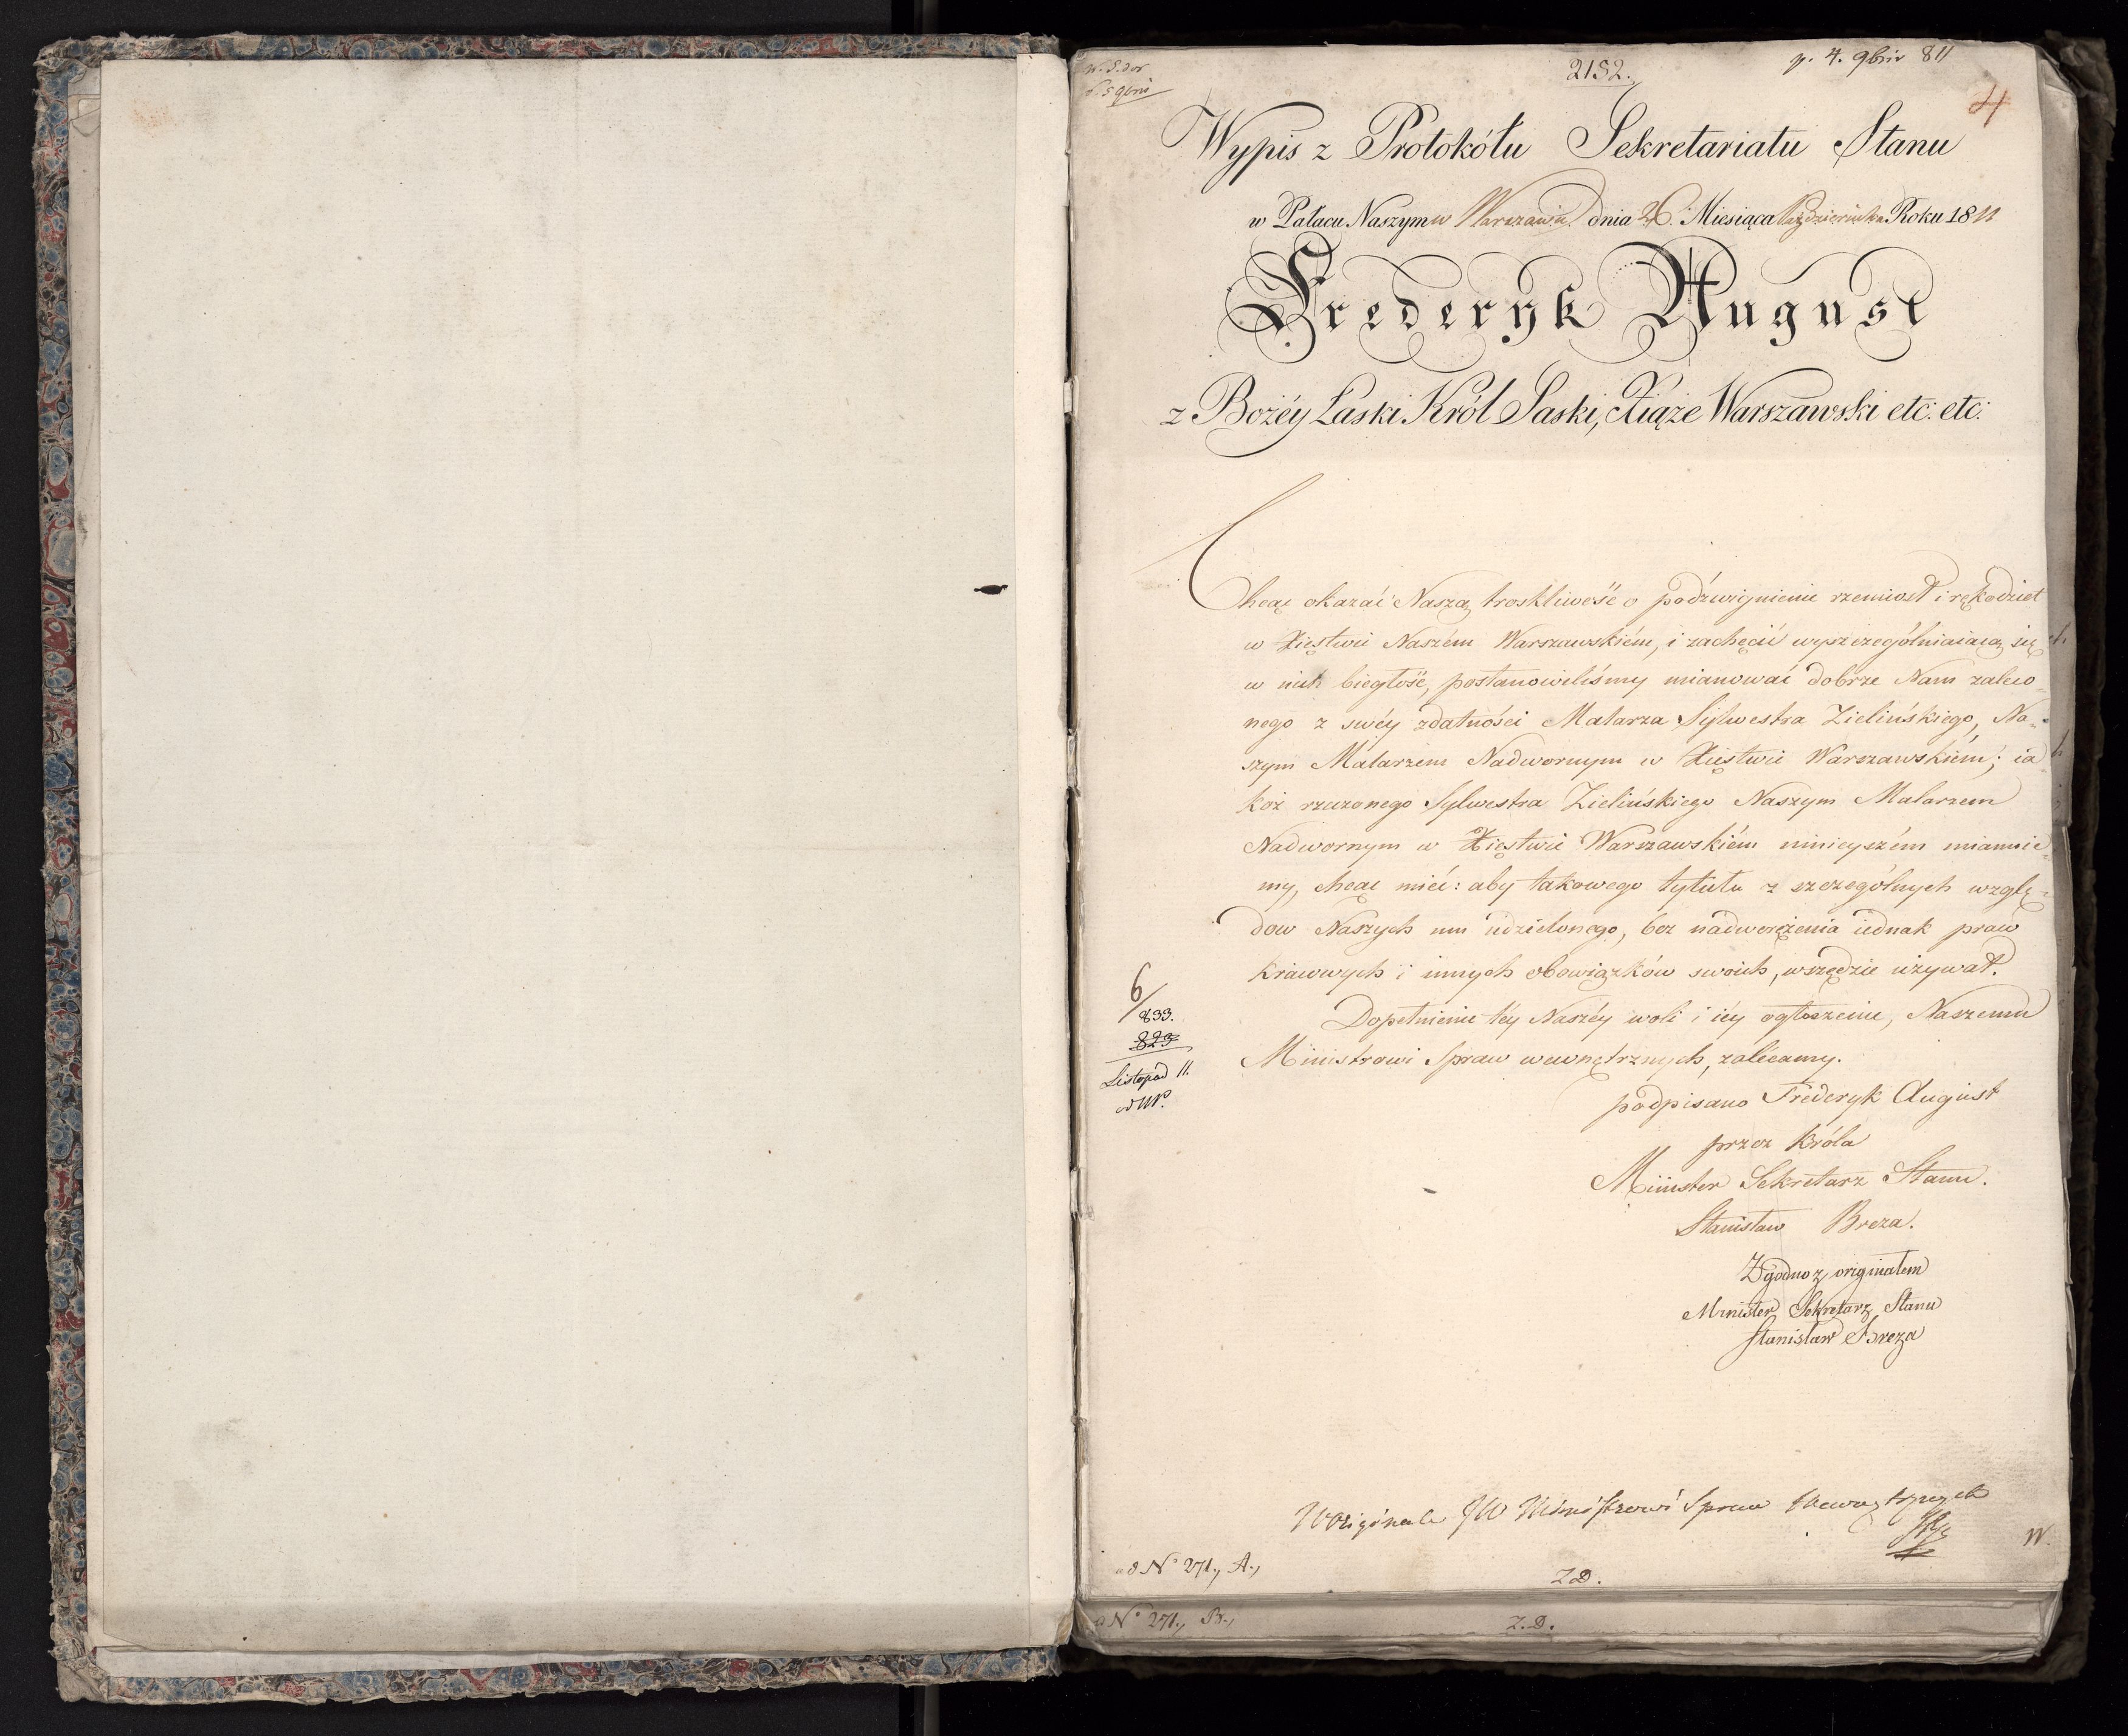 2152.
p. 4. 9bris 811
4
Wypis z Protokółu Sekretariatu Stanu
w Pałacu Naszym w Warszawie dnia 26. Miesiąca Października Roku 1811
Frederyk August
z Bożéy Łaski Król Saski, Xiąże Warszawski etc: etc:
Chcąc okazać Naszą troskliwość o podźwignienie rzemiosł i rękodzieł
w Xięstwie Naszém Warszawskiém, i zachęcić wyszczególniaiącą się
w nich biegłość, postanowiliśmy mianować dobrze Nam zaleco-
nego z swéy zdatności Malarza Sylwestra Zielińskiego, Na-
szym Malarzem Nadwornym w Xięstwie Warszawskiém; ia
koż rzeczonego Sylwestra Zielińskiego Naszym Malarzem
Nadwornym w Xięstwie Warszawskiém ninieyszém mianuie-
my, chcąc mieć: aby takowego tytułu z szczególnych wzglę-
dow Naszych mu udzielonego, bez nadwerężenia iednak praw
kraiowych i innych obowiązków swoich, wszędzie używał.
Dopełnienie téy Naszéy woli i iéy ogłoszenie, Naszemu
Ministrowi Spraw wewnętrznych, zalecamy.
6/
833.
823
Listopad 11.
podpisano Frederyk August
przez Króla
Minister Sekretarz Stanu.
Stanisław Breza.
Zgodno z originałem
Minister Sekretarz Stanu
Stanisław Breza
W Originale JW Ministrowi Spraw Wewnętrznych
W.
ad N° 271., A.,
Z.D.
N° 271., B.,
Z.D.